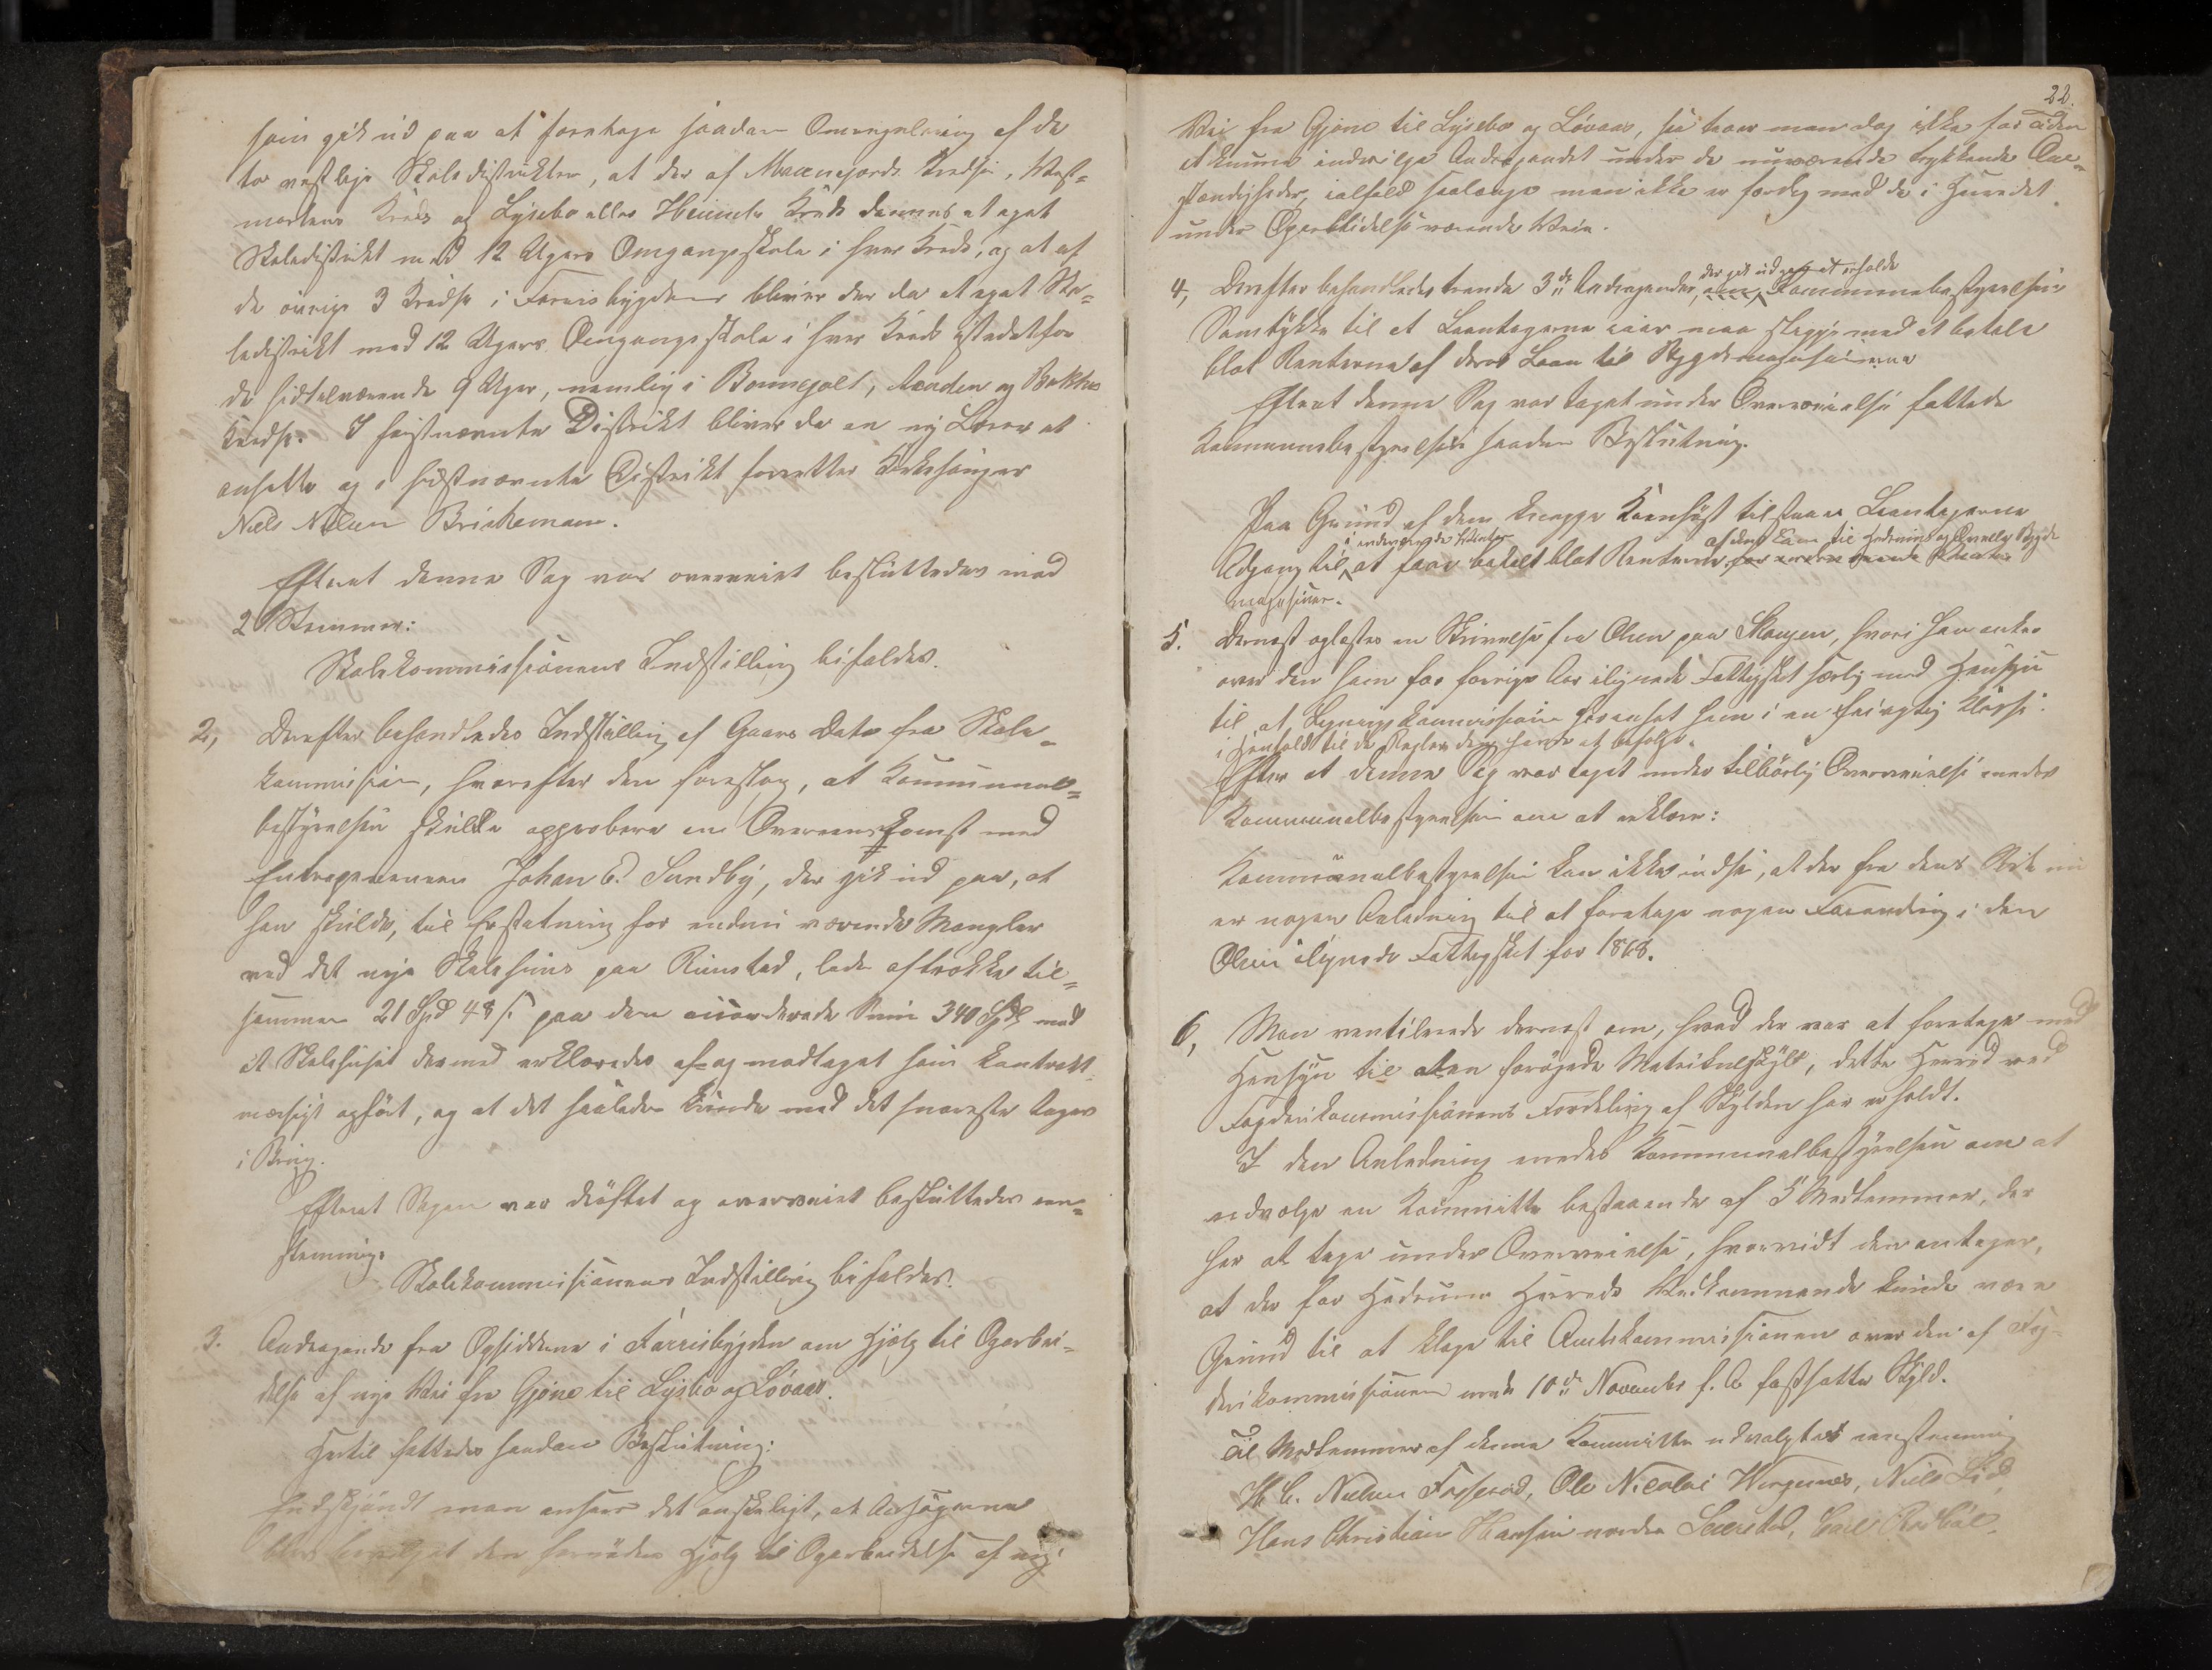 som gik ud paa at foretage saadan Omregulering af de
to vestlige Skoledistrikter, at der af Kredse, Vest-
Kreds og Lysebo eller Kreds dannes et eget
Skoledistrikt med 12 Ugers Omgangsskole i hver Kreds, og at af
de øvrige 3 Kredse i Farrisbygden bliver der da et eget Sko-
ledistrikt med 12 Ugers Omgangsskole i hver Kreds istedetfor
de hidtilværende 9 Uger, nemlig i Bommejolt, og
Kredse. I førstnævnte Distrikt bliver da en ny Lærer at
ansætte og i sidstnævnte Distrikt forretter Kirkesanger
Niels Nilsen Brinkemann.
Efterat denne Sag var overveiet besluttedes med
Stemmer:
Skolekommissionens Indstilling bifaldes.
2, Derefter behandledes Indstilling af Gaars Dato fra Skole-
kommission, hvorefter den foreslog, at Kommunal-
bestyrelsen skulde approbere en Overenskomst med
Entreprenøren Johan C. Sundby, der gik ud paa, at
han skulde, til Erstatning for endnu værende Mangler
ved det nye Skolehuus paa Rimstad, lade aftrække til-
sammen 21 Spd 48 s. paa den Sum 340 Spd mod
at Skolehuset dermed erklæredes af- og modtaget som kontrakt-
mæssigt opført, og at det saaledes kunde med det snareste tages
i Brug.
Efterat Sagen var drøftet og overveiet besluttedes een-
stemmig:
Skolekommissionens Indstilling bifaldes.
3. Andragende fra Opsidderne i Farrisbygden om Hjælp til Oparbei-
delse af nye Vei fra Gjone til Lysebo og Løvaas.
Hertil fattedes saadan Beslutning:
Endskjøndt man anseer det ønskeligt, at Ansøgerne
den fornødne Hjælp til Oparbeidelse af ny
22.
Vei fra Gjone til Lysebo og Løvaas, saa troer man dog ikke for Tiden
at kunne indvilge Andragendet under de nuværende trykkende Om-
stændigheder, ialfald saalænge man ikke er færdig med de i Herredet
under Oparbeidelse værende Veie.
4, Derefter behandledes trende 3de Andragender, der gik ud paa at erholde Kommunebestyrelsens
Samtykke til at Laantagerne iaar maa slippe med at betale
blot Renterne af deres Laan til Bygdemagasinerne
Efterat denne Sag var taget under Overveielse fattede
Kommunebestyrelsen saadan Beslutning.
Paa Grund af den knappe Kornhøst tilstaaes Laantagerne
Adgang til i indeværende Vinter at faae betalt blot Renterne af deres Laan til Hedrums og Kvelle Bygde
magasiner.
5. Dernæst oplæstes en Skrivelse fra Olsen paa Skougen, hvori han anker
over den ham for forrige Aar ilignede Fattigskat særlig med Hensyn
til at Ligningskommissionen har ansat ham i en høi Klasse.
i Henhold til de Regler den havde at befolge.
Efter at denne Sag var taget under tilbørlig Overveielse enedes
Kommunalbestyrelsen om at erklære:
Kommunalbestyrelsen kan ikke indse, at der fra dens Side nu
er nogen Anledning til at foretage nogen Forandring i den
Olsen ilignede Fattigskat for 1868.
6, Man ventilerede dernæst om, hvad der var at foretage med
Hensyn til den forøgede Matrikulskyld, dette Herred ved
Fogderikommissionens Fordeling af Skylden har erholdt.
I den Anledning enedes Kommunalbestyrelsen om at
udvælge en Kommitte bestaaende af 5 Medlemmer, der
har at tage under Overveielse, hvorvidt den antager,
at der for Hedrums Herreds Vedkommende kunde være
Grund til at klage til Amtskommissionen over den af Fog-
derikommissionen under 10de November f. A. fastsatte Skyld.
Til Medlemmer af denne Kommitte udvalgtes eenstemmig
H. C. Nielsen Fosserød, Ole Nicolai Vergenæs, Niels Lid,
Hans Christian Hansen nordre Seierstad, Carl Rødbøl.